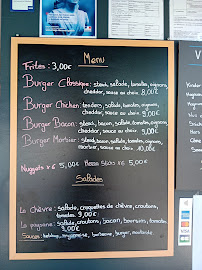 Menu
Frites : 3,00€
Burger Classique : steak, salade, tomates, oignons,
cheddar, sauce au choix. 8,00€
Burger Chicken : tenders, salade, tomates, oignons,
cheddar, sauce au choix. 9,00€
Burger Bacon : steak, bacon, salade, tomates, oignons,
cheddar, sauce au choix. 9,00€
Burger Morbier : steak, salade, tomates, oignons,
morbier, sauce au choix. 10,00€
Nuggets x 6 5,00€ Mozza Sticks x 5 5,00€
Salades
La Chèvre : salade, croquettes de chèvre, croutons,
tomates. 9,00€
La paysanne : salade, croutons, bacon, tomates,
Sauces : ketchup, mayonnaise, barbecue, burger, moutarde
V
Kinder